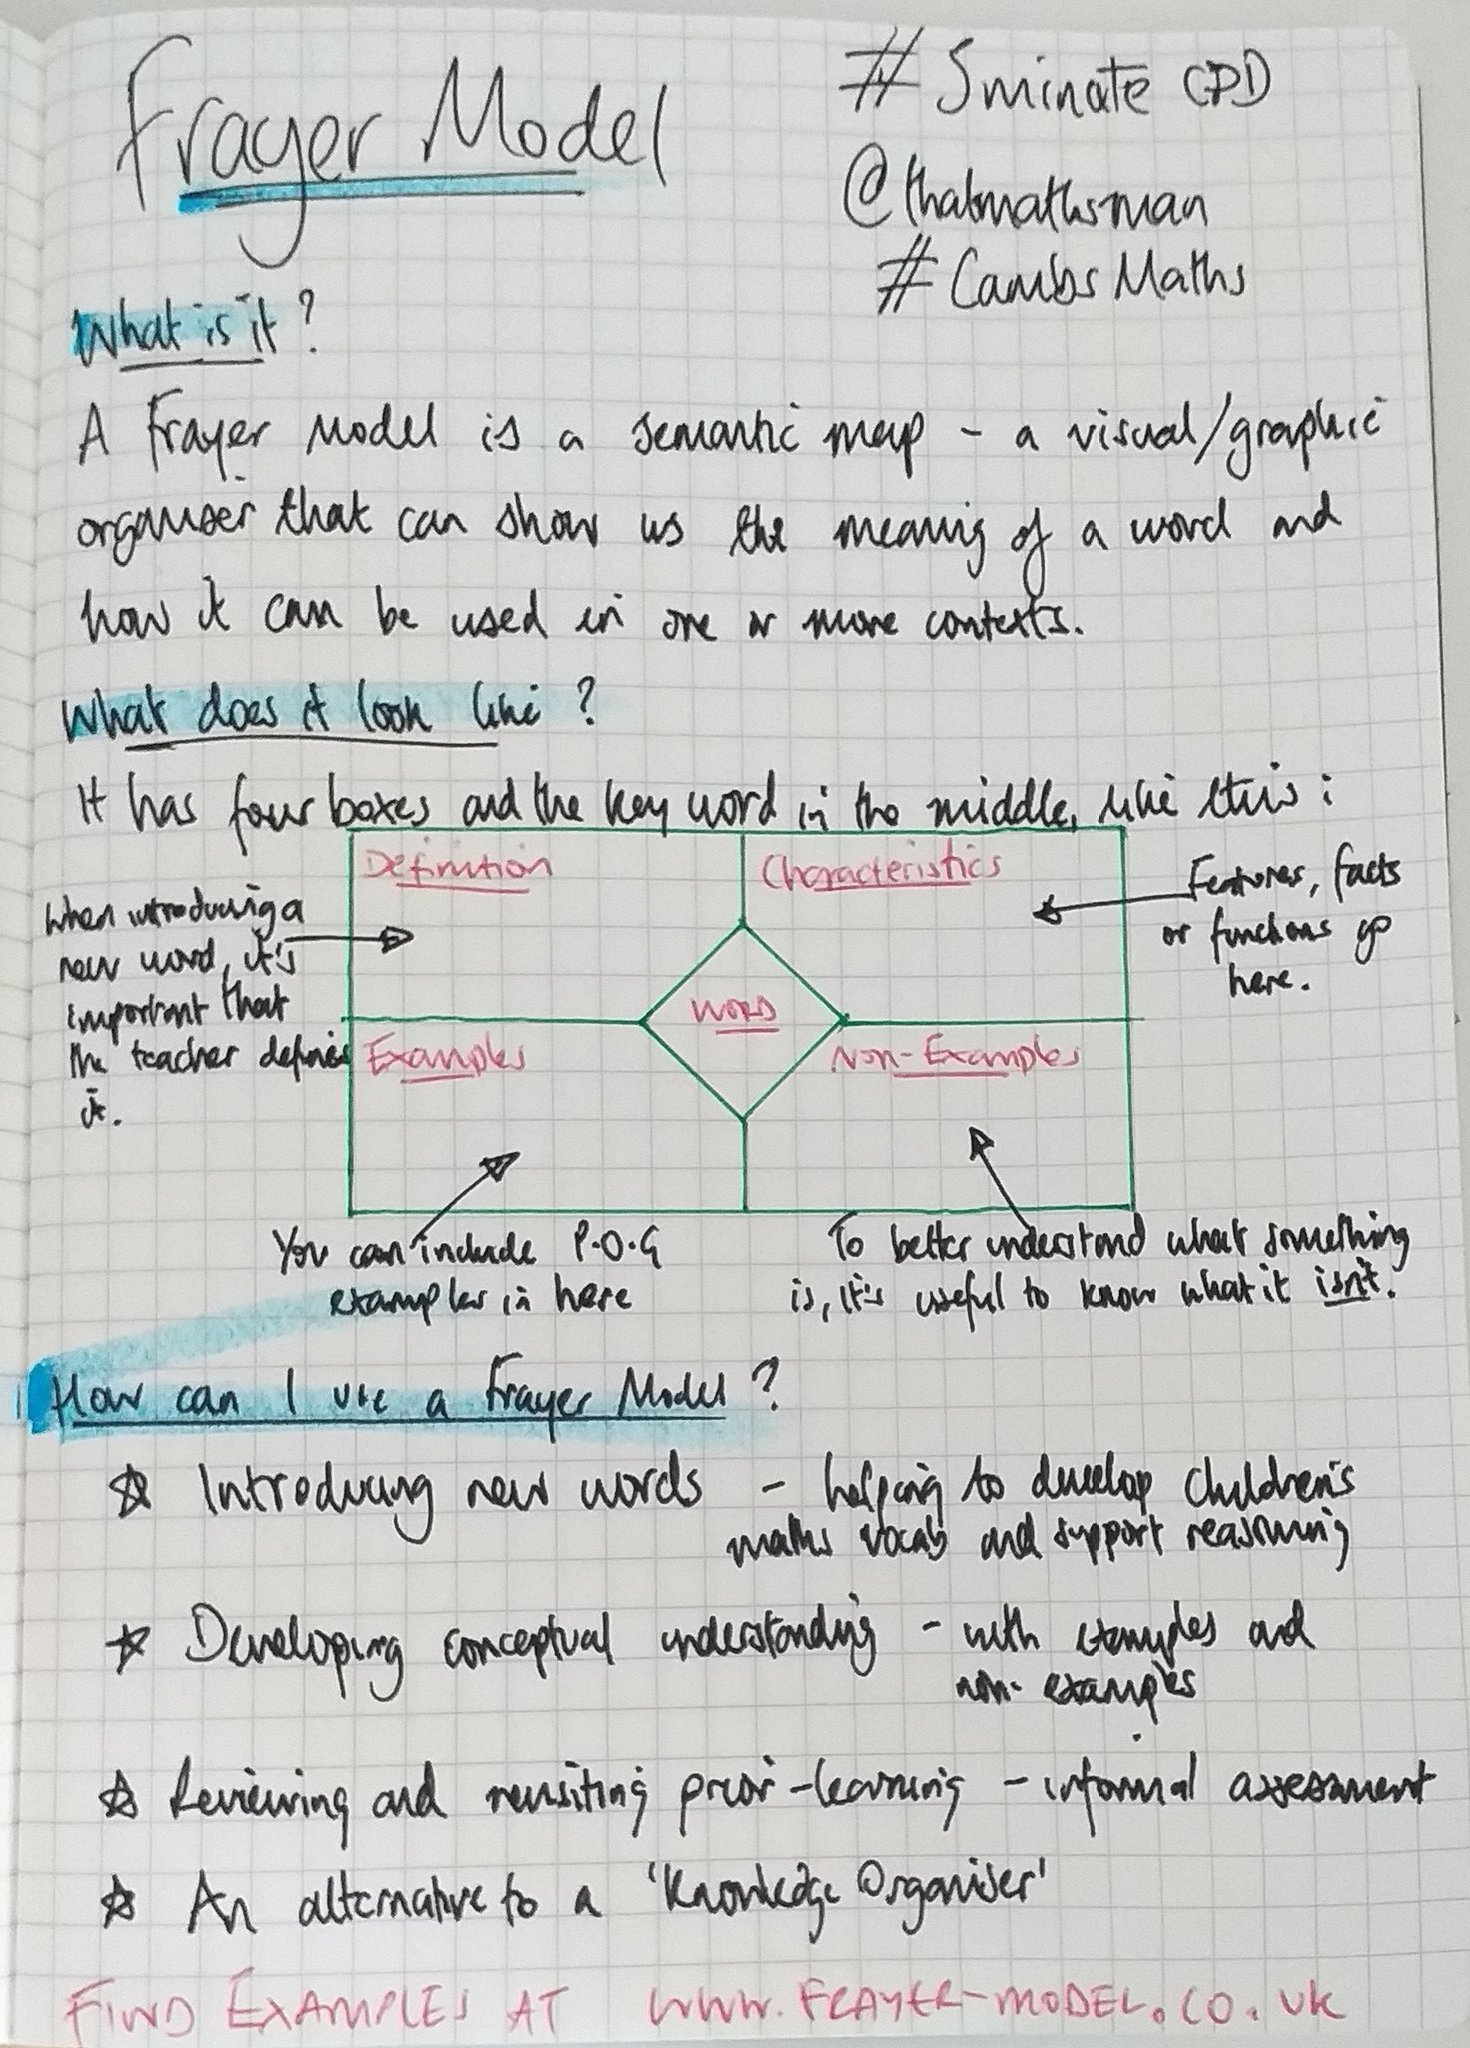 Frayer Model
#5minute CPD
@thatmathsman
#CambsMaths
What is it?
A Frayer Model is a semantic map - a visual/graphic
organiser that can show us the meaning of a word and
how it can be used in one or more contexts.
What does it look like?
It has four boxes and the key word in the middle, like this:
Definition
Characteristics
When introducing a
new word, it's
important that
the teacher defines
it.
Features, facts
or functions go
here.
WORD
Examples
Non-Examples
You can include P.O.G
examples in here
To better understand what something
is, it's useful to know what it isn't.
How can I use a Frayer Model?
☆ Introducing new words - helping to develop children's
maths vocab and support reasoning
☆ Developing conceptual understanding - with examples and
non-examples
☆ Reviewing and revisiting prior-learning - informal assessment
☆ An alternative to a 'Knowledge Organiser'
FIND EXAMPLES AT WWW.FRAYER-MODEL.CO.UK